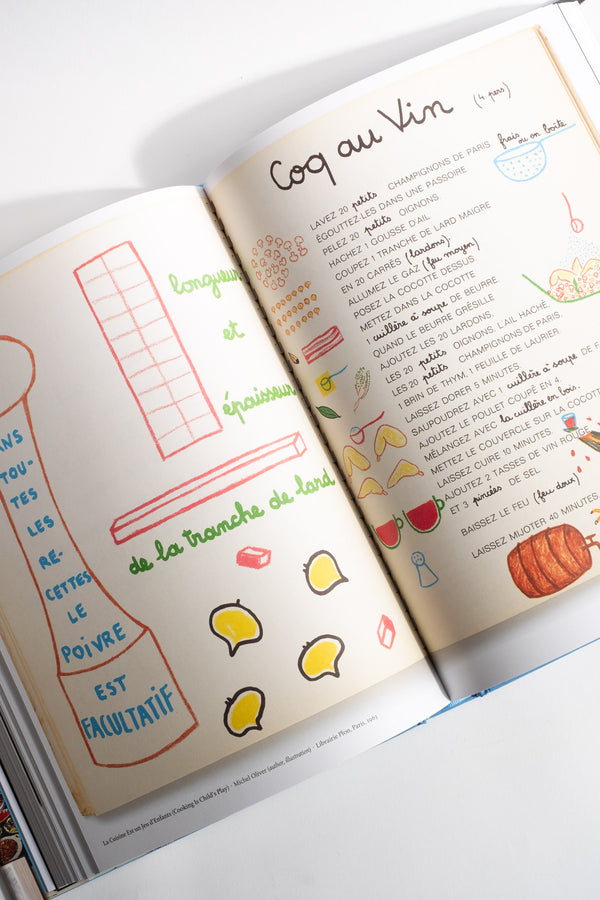 longueur
et
épaisseur
de la tranche de lard
TOU-
TES
LES
RE-
CETTES
LE
POIVRE
EST
FACULTATIF
La Cuisine Est un Jeu d'Enfants (Cooking Is Child's Play) · Michel Oliver (author, illustration) · Librairie Plon, Paris, 1963
Coq au Vin (4 pers)
LAVEZ 20 petits CHAMPIGNONS DE PARIS frais ou en boîte
ÉGOUTTEZ-LES DANS UNE PASSOIRE
PELEZ 20 petits OIGNONS
HACHEZ 1 GOUSSE D'AIL
COUPEZ 1 TRANCHE DE LARD MAIGRE
EN 20 CARRÉS (lardons)
ALLUMEZ LE GAZ (feu moyen)
POSEZ LA COCOTTE DESSUS
METTEZ DANS LA COCOTTE
1 cuillère à soupe DE BEURRE
QUAND LE BEURRE GRÉSILLE
AJOUTEZ LES 20 LARDONS
LES 20 petits OIGNONS. L'AIL HACHÉ
LES 20 petits CHAMPIGNONS DE PARIS
1 BRIN DE THYM. 1 FEUILLE DE LAURIER
LAISSEZ DORER 5 MINUTES
SAUPOUDREZ AVEC 1 cuillère à soupe DE
AJOUTEZ LE POULET COUPÉ EN 4
MÉLANGEZ AVEC la cuillère en bois.
METTEZ LE COUVERCLE SUR LA COCOTTE
LAISSEZ CUIRE 10 MINUTES
AJOUTEZ 2 TASSES DE VIN ROUGE
ET 3 pincées DE SEL
BAISSEZ LE FEU (feu doux)
LAISSEZ MIJOTER 40 MINUTES